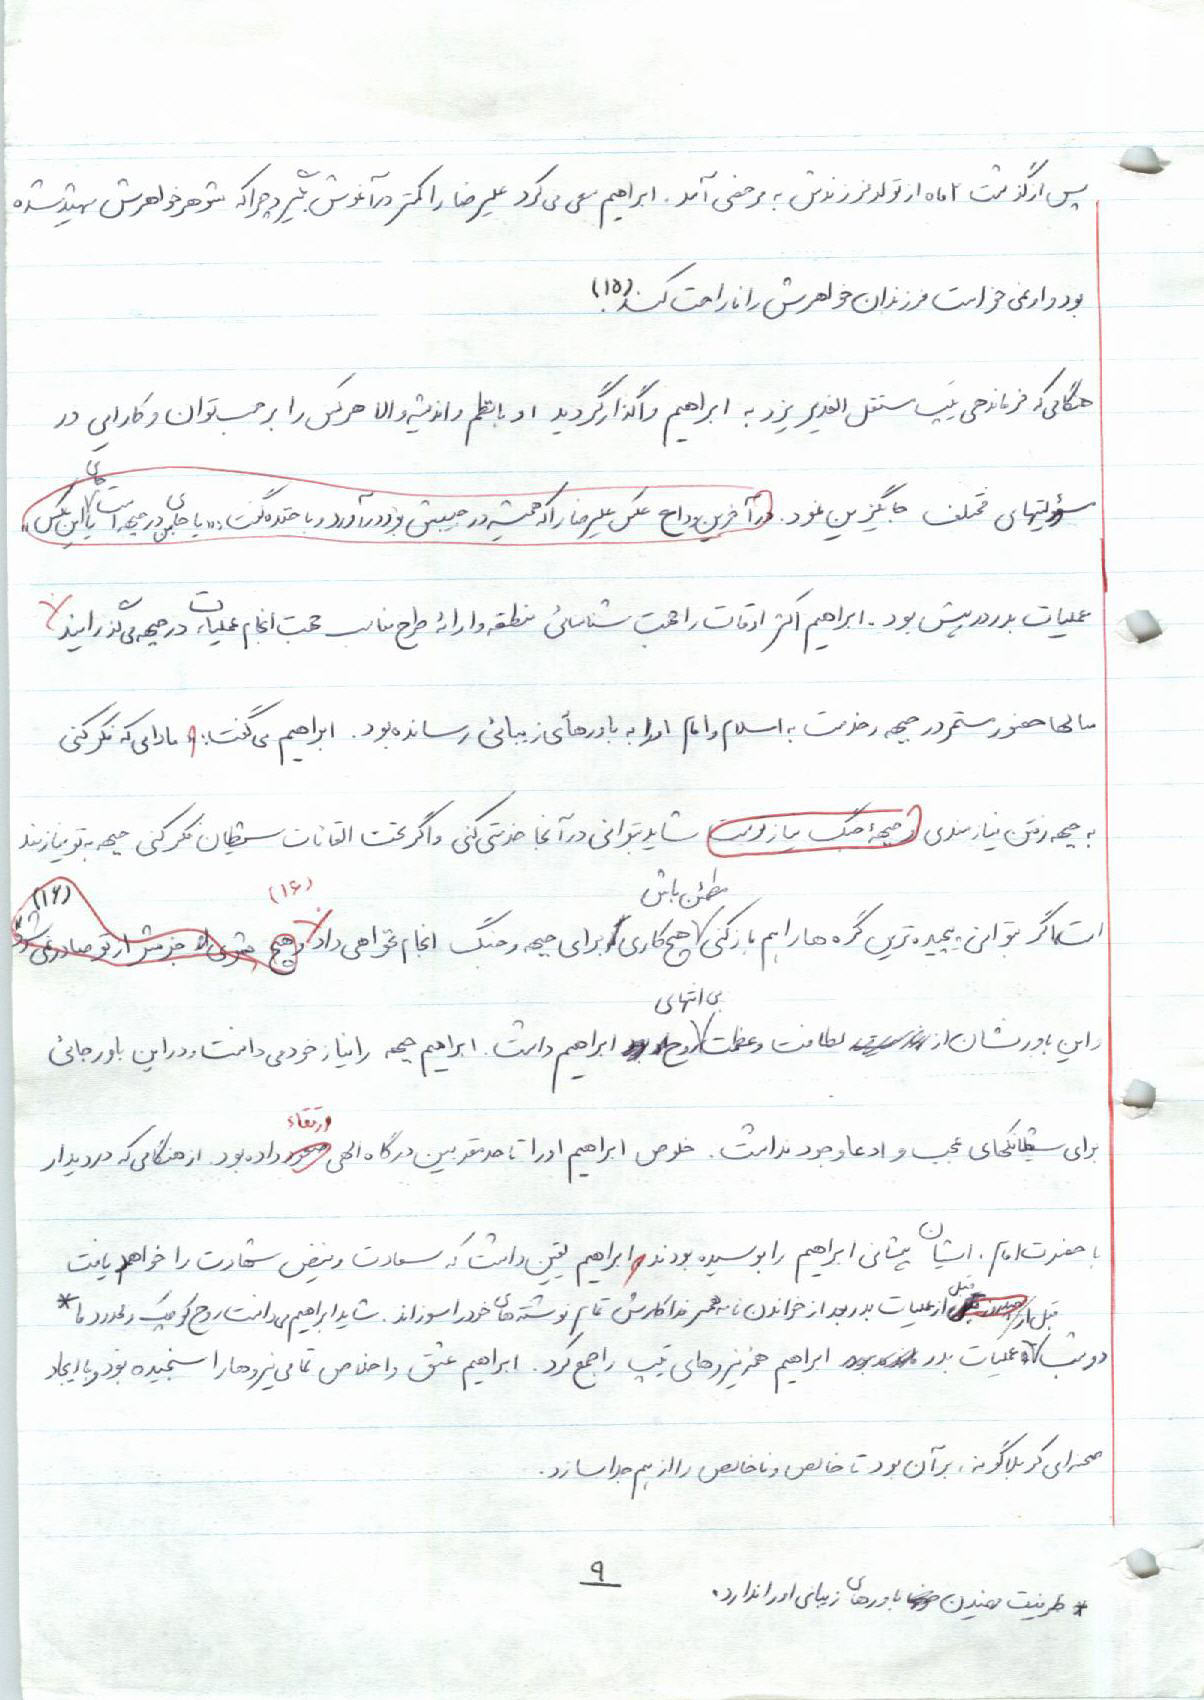 پس از گذشت ۲ ماه از تولد فرزندش به مرخصی آمد. ابراهیم سعی می کرد علیرضا را کمتر در آغوش بگیرد چرا که شوهر خواهرش شهید شده
بود و او نمی خواست فرزندان خواهرش را ناراحت کند. (۱۵)
هنگامی که فرماندهی تیپ مستقل الغدیر یزد به ابراهیم واگذار گردید او با نظم و اندیشه والا هر کس را بر حسب توان و کارایی در
مسؤولیتهای مختلف جایگزین نمود. در آخرین وداع عکس علیرضا را که همیشه در جیبش بود در آورد و با خنده گفت: «یا جای من در جبهه است یا جای این عکس»
عملیات بدر در پیش بود. ابراهیم اکثر اوقات را جهت شناسائی منطقه و ارائه طرح مناسب جهت انجام عملیات در جبهه می گذرانید
سالها حضور مستمر در جبهه و خدمت به اسلام و امام او را به باورهای زیبائی رسانده بود. ابراهیم می گفت: مادامی که فکر کنی
به جبهه رفتن نیازمندی و جبهه و جنگ نیاز توست شاید بتوانی در آنجا خدمتی کنی و اگر تحت القائات شیطان فکر کنی جبهه به تو نیازمند
است اگر بتوانی پیچیده ترین گره ها را هم باز کنی مطمئن باش هیچ کاری برای جبهه و جنگ انجام نخواهی داد (۱۶) و هیچ از تو صادر نمی شود (۱۶)
و این باور نشان از لطافت و عظمت بی انتهای روح ابراهیم داشت. ابراهیم جبهه را نیاز خود می دانست و در این باور جائی
برای شیطانکهای عجب و ادعا وجود نداشت. خلوص ابراهیم او را تا حد مقربین درگاه الهی ارتقاء داده بود. از هنگامی که در دیدار
با حضرت امام، ایشان پیشانی ابراهیم را بوسیده بودند ابراهیم یقین داشت که سعادت و فیض شهادت را خواهد یافت
قبل از عملیات بدر بعد از خواندن نامه همسر فداکارش تمام نوشته های خود را سوزاند. شاید ابراهیم می دانست روح کوچک و محدود ما *
دو شب قبل از عملیات بدر ابراهیم همه نیروهای تیپ را جمع کرد. ابراهیم عشق و اخلاص تمامی نیروها را سنجیده بود و با ایجاد
صحنه ای کربلاگونه، بر آن بود تا خالص و ناخالص را از هم جدا سازد.
۹
* ظرفیت فهمیدن باورهای زیبائی او را ندارد.